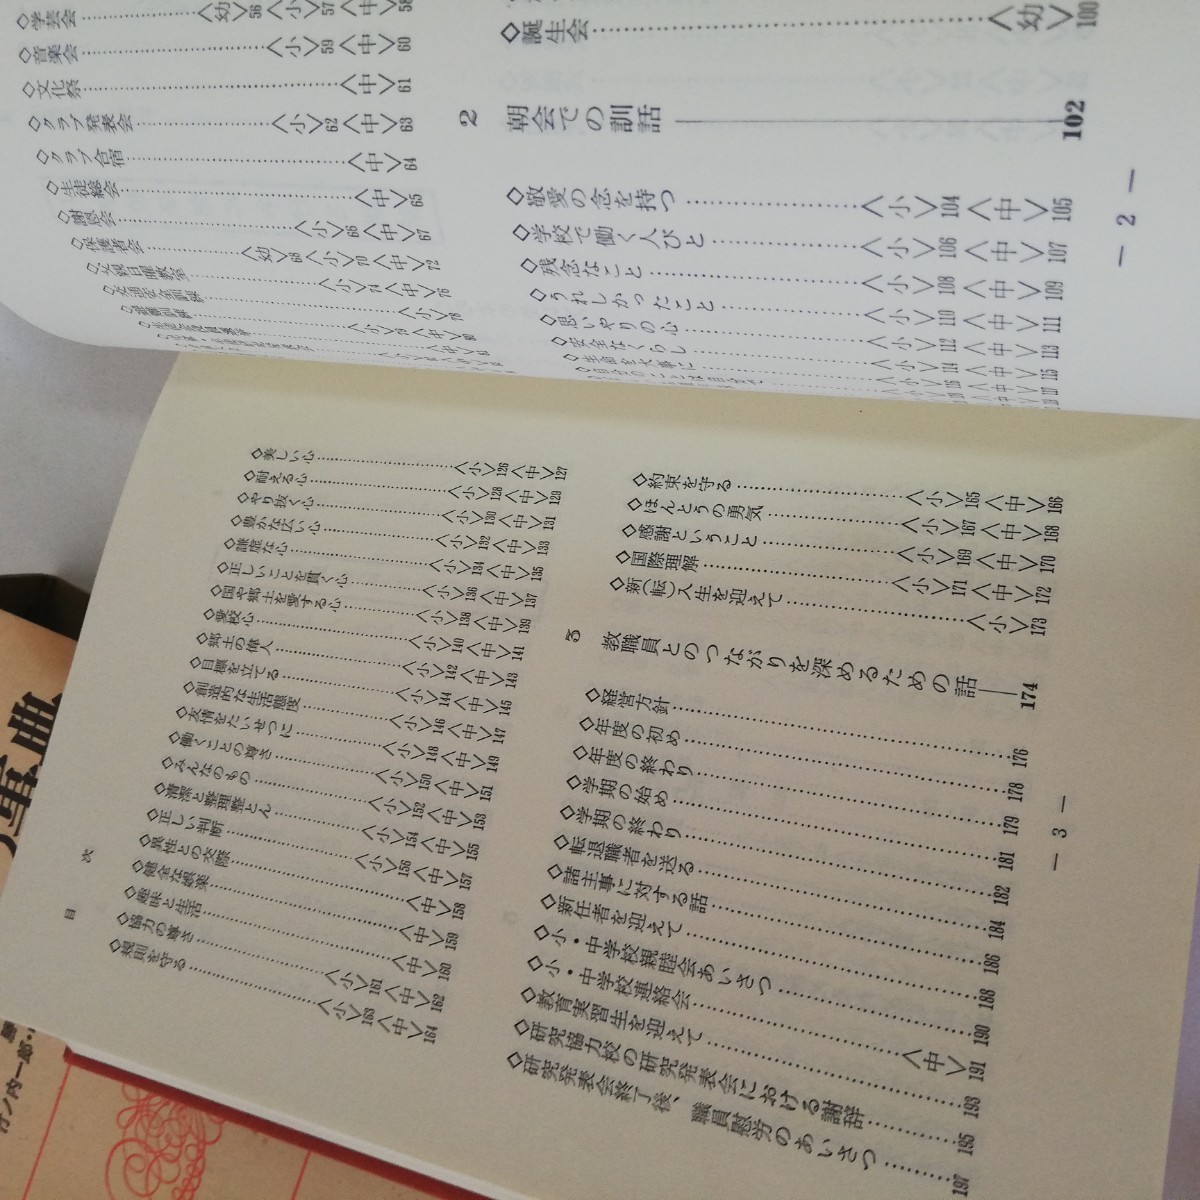 ◇学芸会 〈幼〉56 〈小〉57 〈中〉58
◇音楽会 〈小〉59 〈中〉60
◇文化祭 〈中〉61
◇クラブ発表会 〈小〉62 〈中〉63
◇クラブ合宿 〈中〉64
◇生徒総会 〈中〉65
◇謝恩会 〈小〉66 〈中〉67
◇保護者会 〈幼〉68 〈小〉70 〈中〉72
〈小〉74 〈中〉76
◇交通安全訓練 〈小〉78
◇避難訓練 〈小〉79 〈中〉80
◇誕生会 〈幼〉100
2 朝会での訓話 102
◇敬愛の念を持つ 〈小〉104 〈中〉105
◇学校で働く人びと 〈小〉106 〈中〉107
◇残念なこと 〈小〉108 〈中〉109
◇うれしかったこと 〈小〉110 〈中〉111
◇思いやりの心 〈小〉112 〈中〉113
◇安全なくらし 〈小〉114 〈中〉115
◇生命を大事に 〈小〉116 〈中〉117
― 2 ―
◇美しい心 〈小〉126 〈中〉127
◇耐える心 〈小〉128 〈中〉129
◇やり抜く心 〈小〉130 〈中〉131
◇豊かな広い心 〈小〉132 〈中〉133
◇謙虚な心 〈小〉134 〈中〉135
◇正しいことを貫く心 〈小〉136 〈中〉137
◇国や郷土を愛する心 〈小〉138 〈中〉139
◇愛校心 〈小〉140 〈中〉141
◇郷土の偉人 〈小〉142 〈中〉143
◇目標を立てる 〈小〉144 〈中〉145
◇創造的な生活態度 〈小〉146 〈中〉147
◇友情をたいせつに 〈小〉148 〈中〉149
◇働くことの尊さ 〈小〉150 〈中〉151
◇みんなのもの 〈小〉152 〈中〉153
◇清潔と整理整とん 〈小〉154 〈中〉155
◇正しい判断 〈小〉156 〈中〉157
◇異性との交際 〈中〉158
◇健全な娯楽 〈中〉159
◇趣味と生活 〈中〉160
◇協力の尊さ 〈小〉161 〈中〉162
◇規則を守る 〈小〉163 〈中〉164
◇約束を守る 〈小〉165 〈中〉166
◇ほんとうの勇気 〈小〉167 〈中〉168
◇感謝ということ 〈小〉169 〈中〉170
◇国際理解 〈小〉171 〈中〉172
◇新(転)入生を迎えて 〈小〉173
3 教職員とのつながりを深めるための話 174
◇経営方針 176
◇年度の初め 178
◇年度の終わり 179
◇学期の始め 181
◇学期の終わり 182
◇転退職者を送る 184
◇諸主事に対する話 186
◇新任者を迎えて 188
◇小・中学校親睦会あいさつ 190
◇小・中学校連絡会 〈中〉191
◇教育実習生を迎えて 193
◇研究協力校の研究発表会における謝辞 195
◇研究発表会終了後、職員慰労のあいさつ 197
目 次
― 3 ―
事典